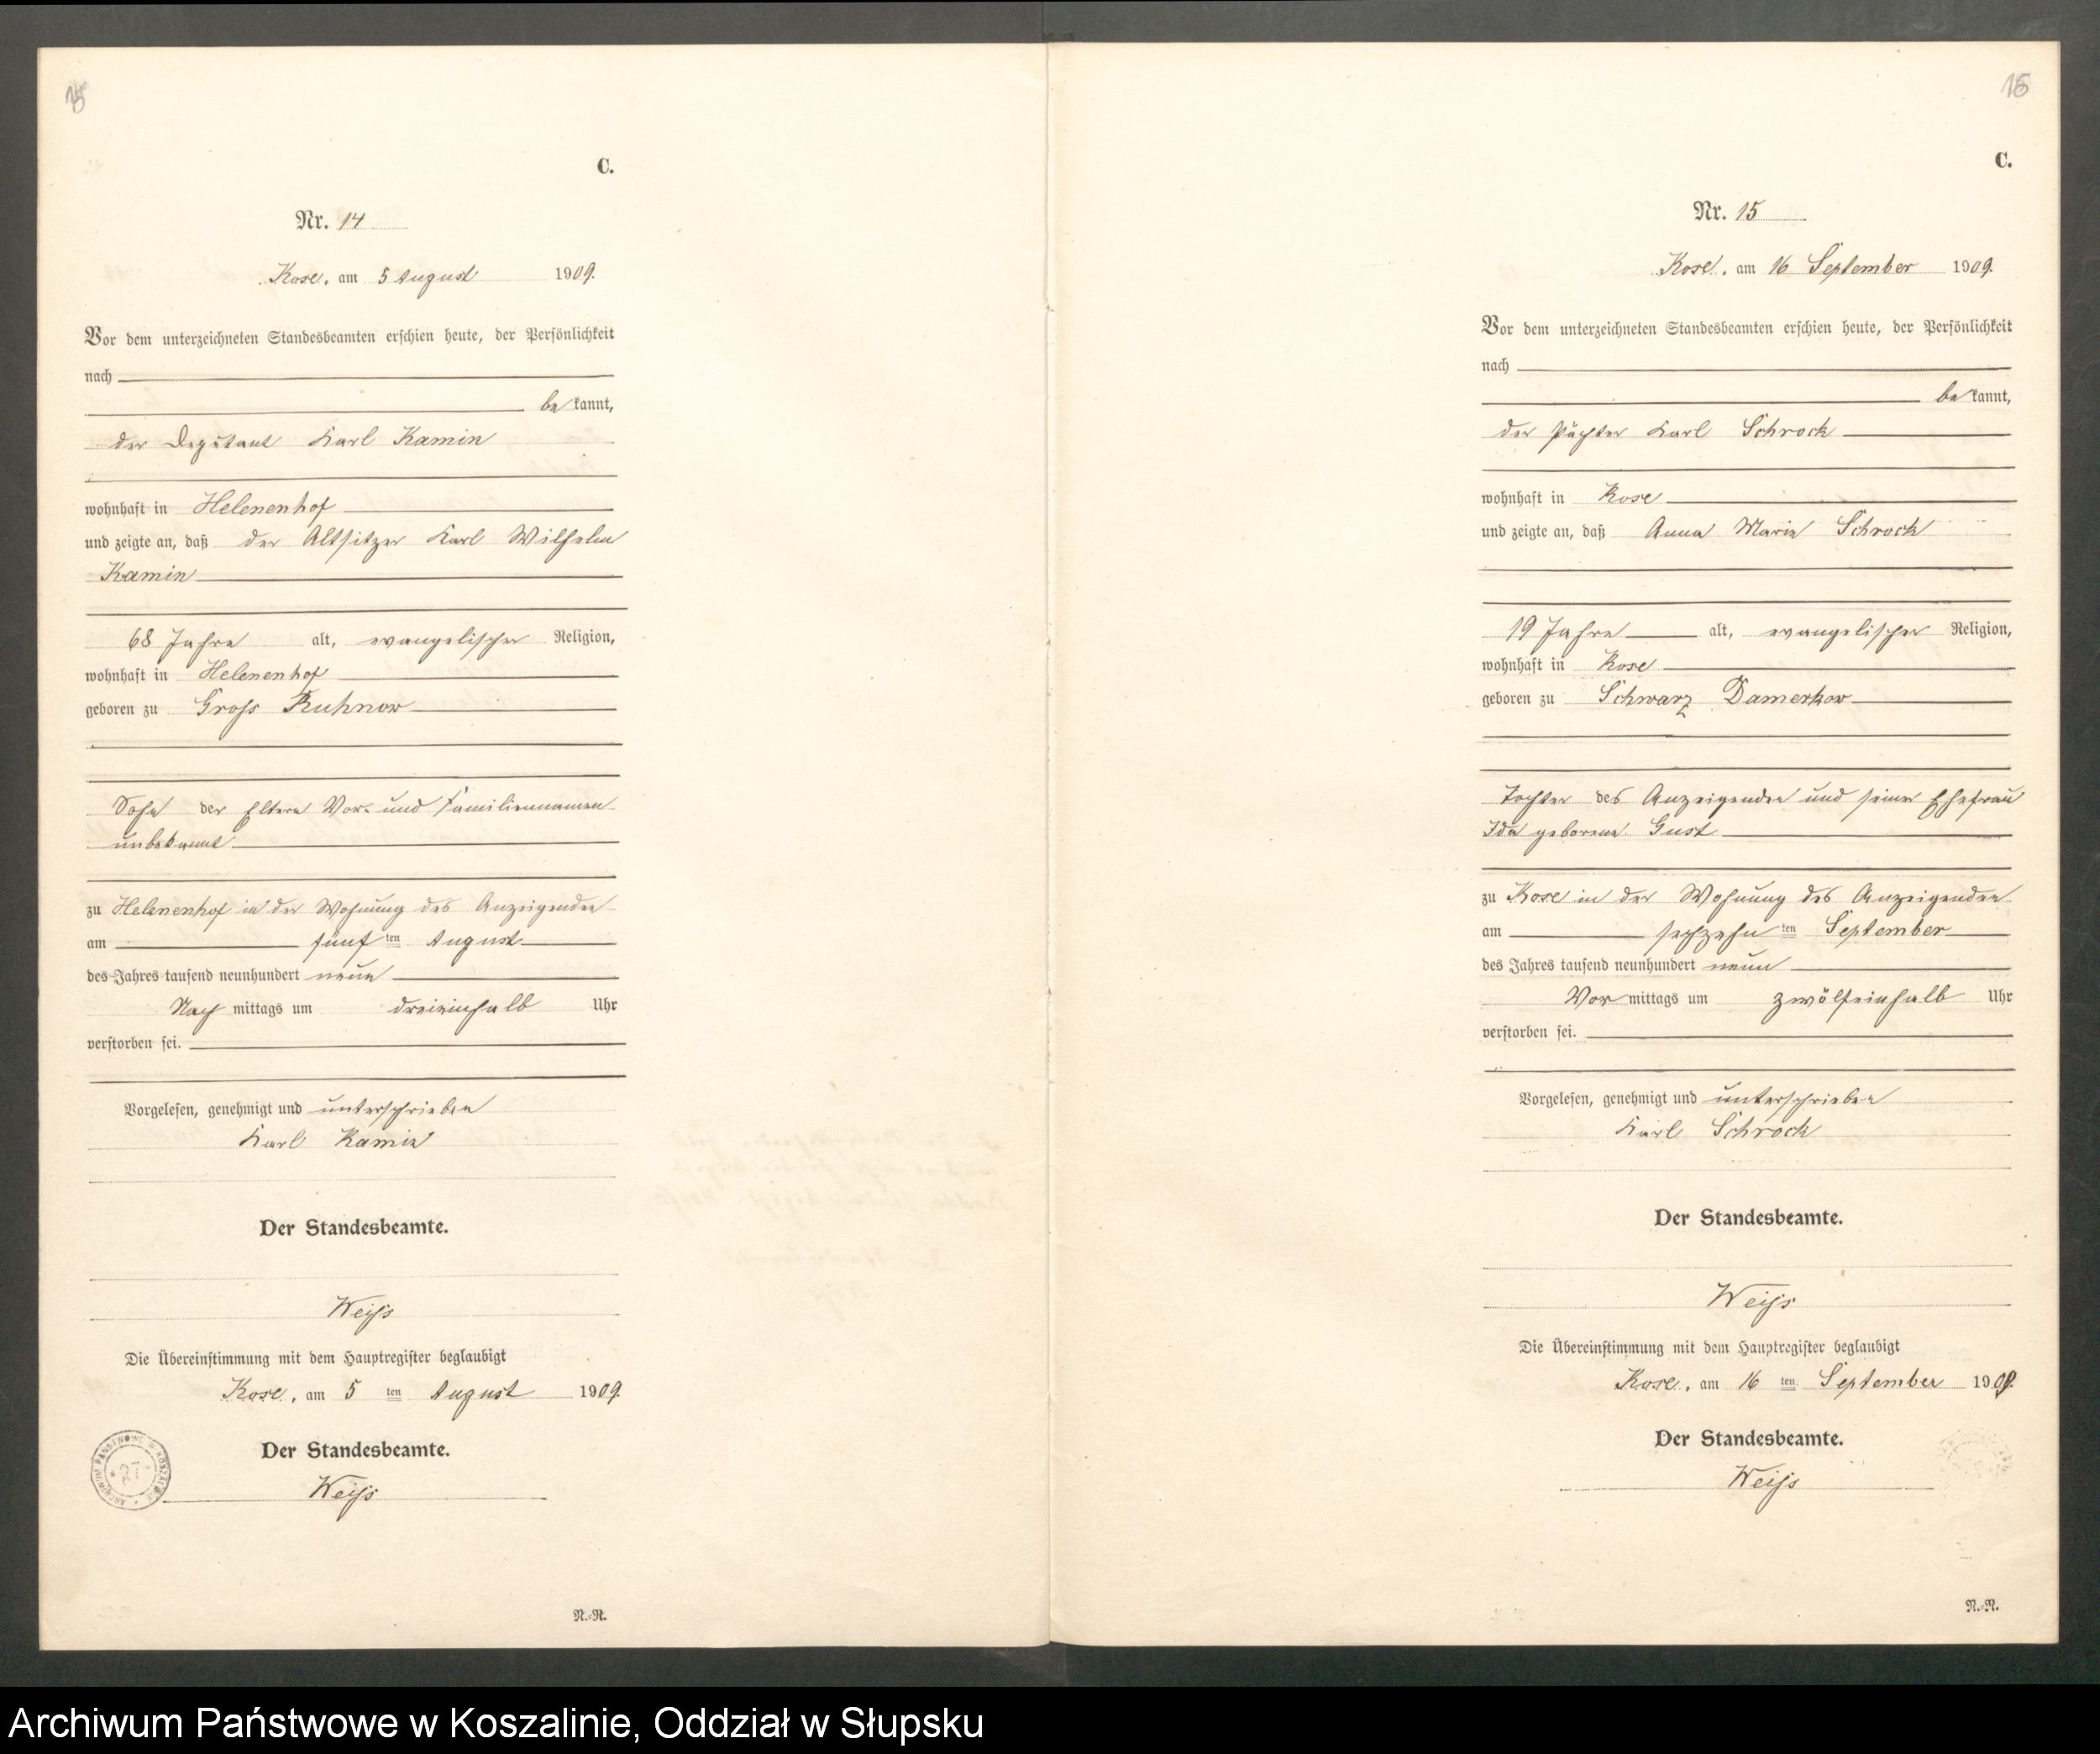 15
C.
Nr. 14
Kose, am 5 August 1909.
Vor dem unterzeichneten Standesbeamten erschien heute, der Persönlichkeit
nach
be kannt,
der Deputant Karl Kamin
wohnhaft in Helenenhof
und zeigte an, daß der Altsitzer Karl Wilhelm
Kamin
68 Jahre alt, evangelischer Religion,
wohnhaft in Helenenhof
geboren zu Gross Ruhnow
Sohn der Eltern Vor- und Familiennamen
unbekannt
zu Helenenhof in der Wohnung des Anzeigenden
am fünf ten August
des Jahres tausend neunhundert neun
Nach mittags um dreieinhalb Uhr
verstorben sei.
Vorgelesen, genehmigt und unterschrieben
Karl Kamin
Der Standesbeamte.
Weiss
Die Übereinstimmung mit dem Hauptregister beglaubigt
Kose, am 5 ten August 1909.
Der Standesbeamte.
Weiss
ARCHIWUM PAŃSTWOWE W KOSZALINIE
27
N.-R.
16
C.
Nr. 15
Kose, am 16 September 1909.
Vor dem unterzeichneten Standesbeamten erschien heute, der Persönlichkeit
nach
be kannt,
der Pächter Karl Schrock
wohnhaft in Kose
und zeigte an, daß Anna Marie Schrock
19 Jahre alt, evangelischer Religion,
wohnhaft in Kose
geboren zu Schwarz Damerkow
Tochter des Anzeigenden und seiner Ehefrau
Ida geborene Gust
zu Kose in der Wohnung des Anzeigenden
am sechzehn ten September
des Jahres tausend neunhundert neun
Vor mittags um zwölfeinhalb Uhr
verstorben sei.
Vorgelesen, genehmigt und unterschrieben
Karl Schrock
Der Standesbeamte.
Weiss
Die Übereinstimmung mit dem Hauptregister beglaubigt
Kose, am 16 ten September 1909.
Der Standesbeamte.
Weiss
N.-R.
Archiwum Państwowe w Koszalinie, Oddział w Słupsku